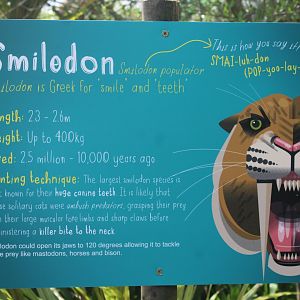 Smilodon
Smilodon populator
This is how you say it
SMAI-luh-don
(POP-yoo-lay-
ilodon is Greek for 'smile' and 'teeth'
ngth: 2.3 - 2.6m
eight: Up to 400kg
ed: 2.5 million - 10,000 years ago
nting technique: The largest smilodon species is
t known for their huge canine teeth. It is likely that
se solitary cats were ambush predators, grasping their prey
h their large muscular fore limbs and sharp claws before
ministering a killer bite to the neck.
ilodon could open its jaws to 120 degrees allowing it to tackle
e prey like mastodons, horses and bison.